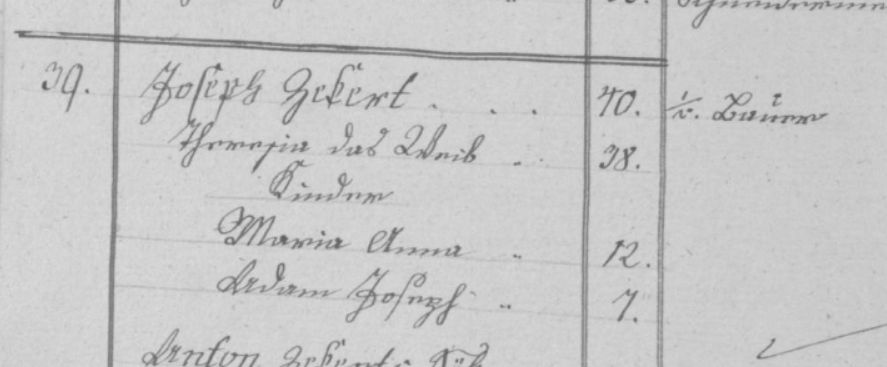 39. Joseph Zekert . . . 40. ½. Bauer
Theresia das Weib . . 38.
Kinder
Maria Anna . . 12.
Adam Joseph . . 7.
Anton Zekerts